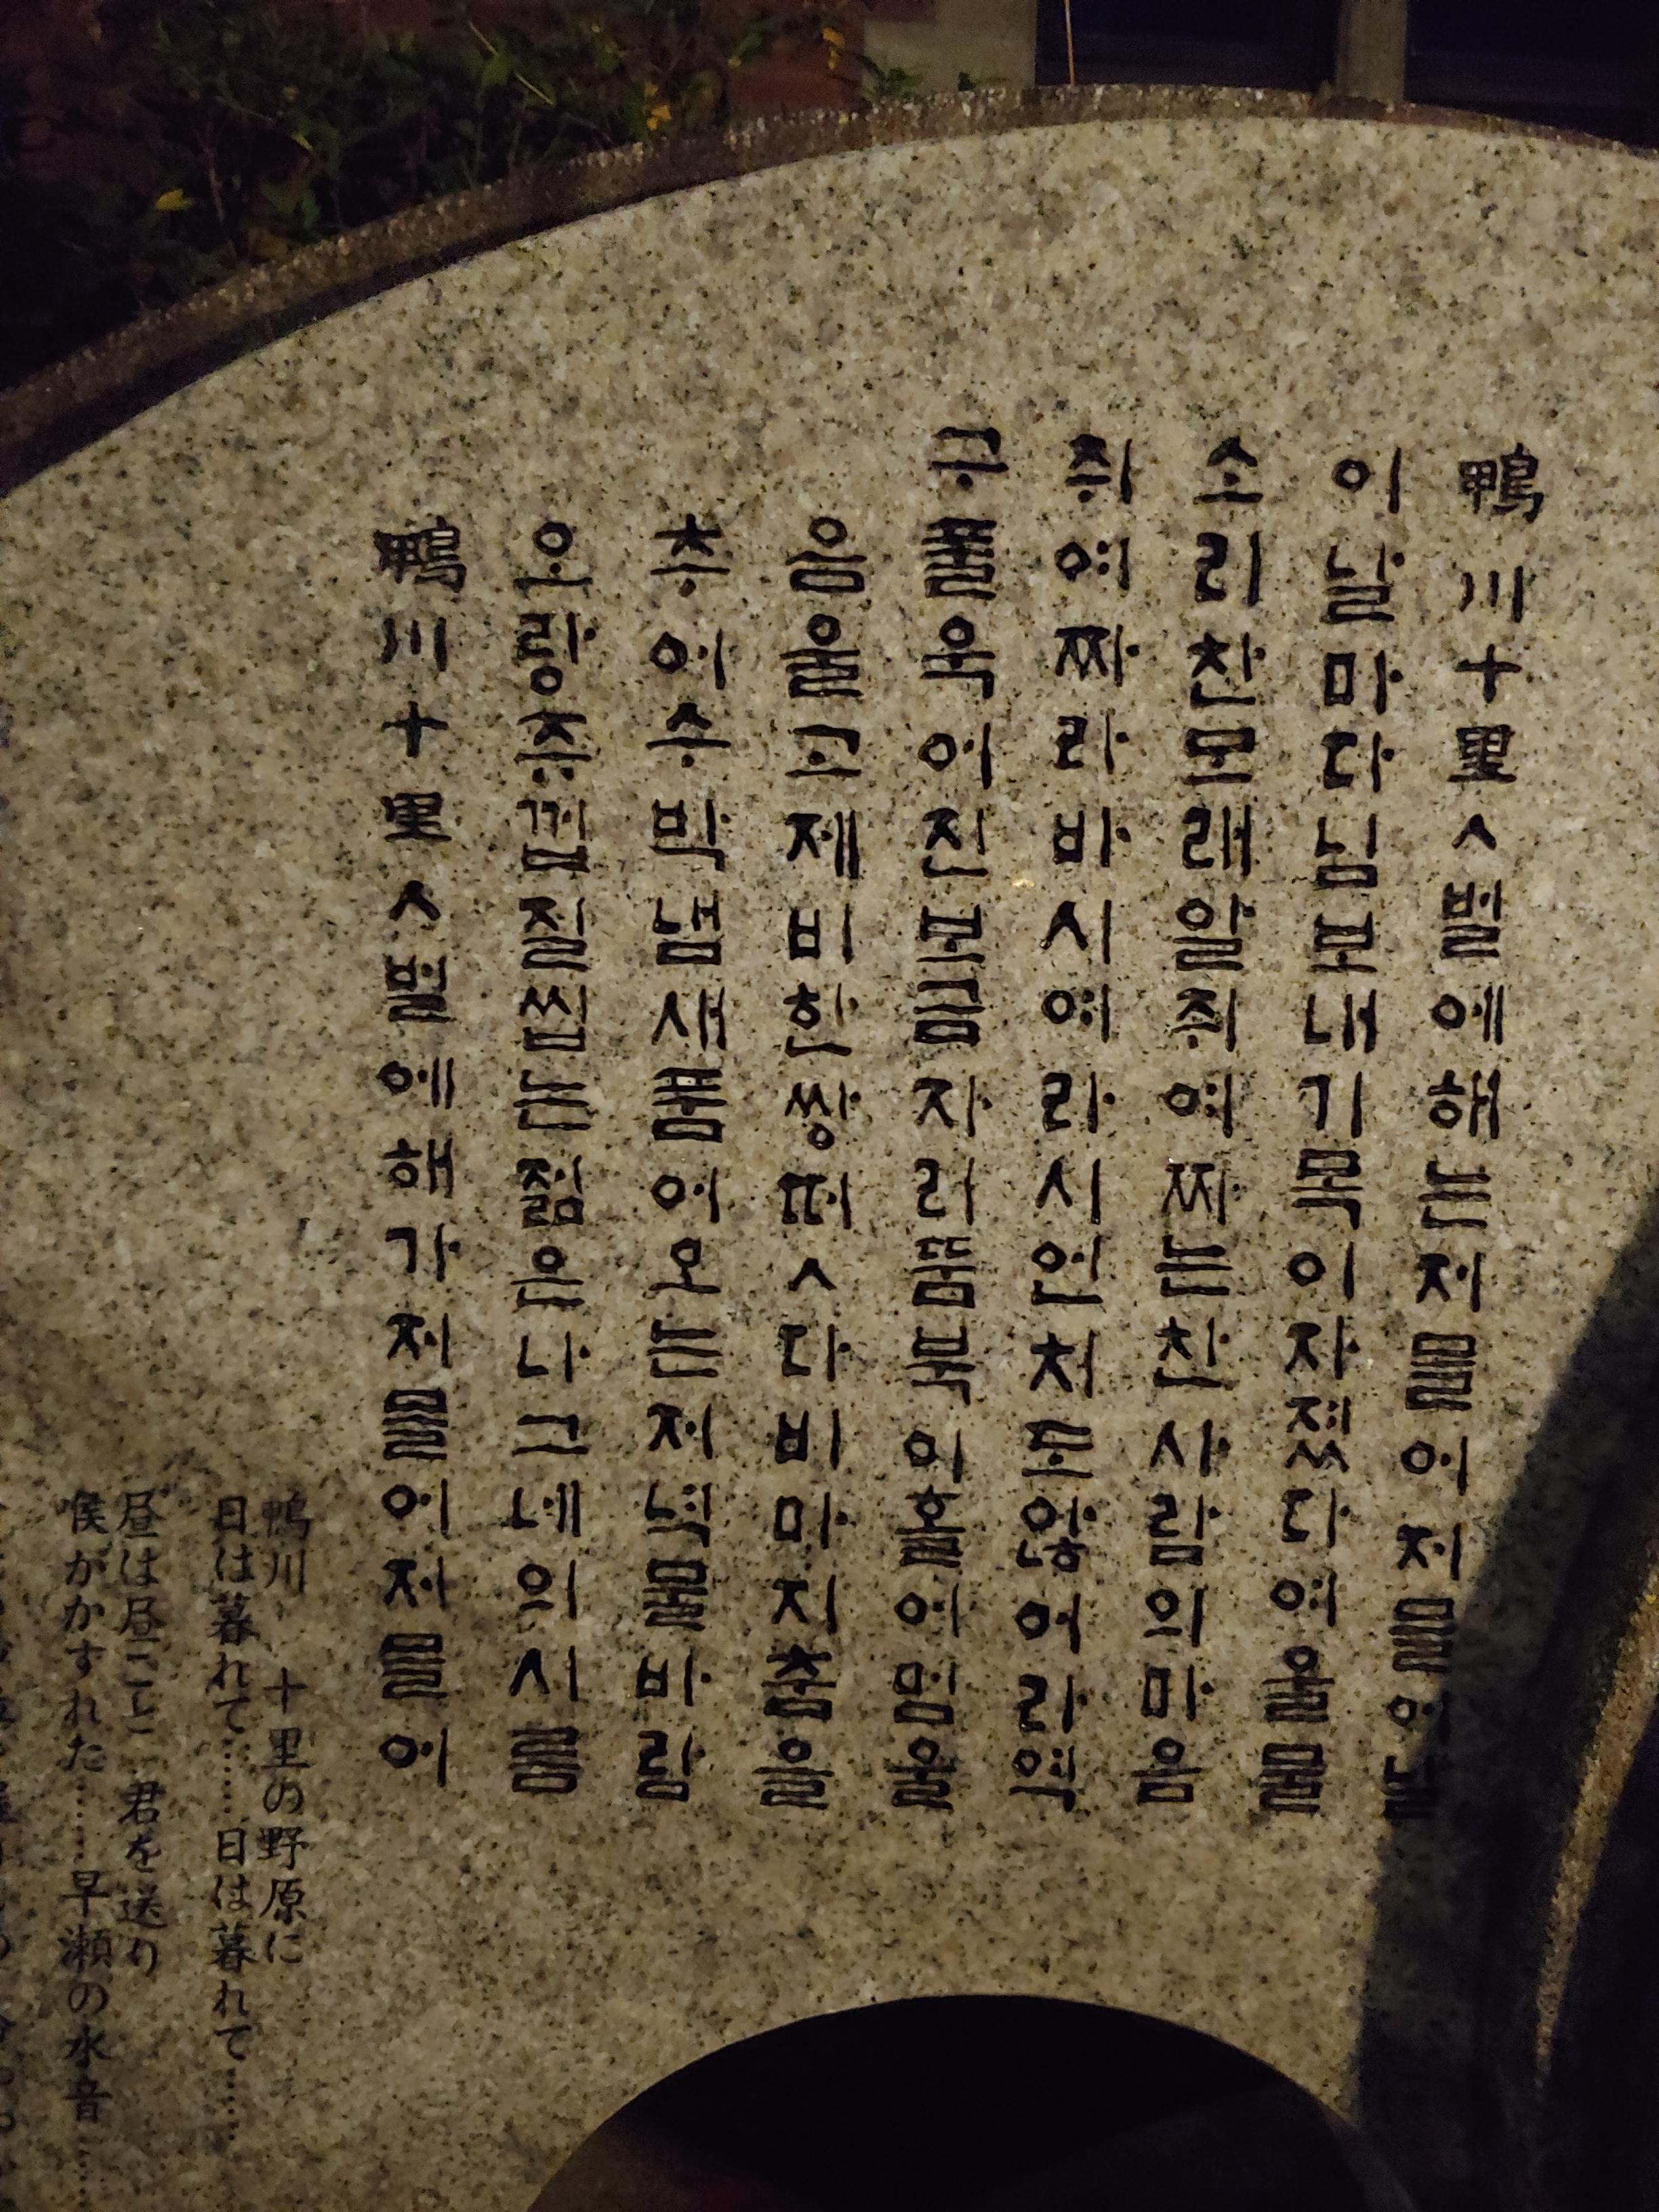 鴨川十里ㅅ벌에해는저믈어저믈어날
이날마다님보내기목이자졌다여울물
소리찬모래알쥐여짜는찬사람의마음
쥐여짜라바시여라시언치도않어라역
구풀욱어진보금자리뜸북이홀어멈울
음울고제비한쌍떠ㅅ다비마지춤을
추어수박냄새품어오는저녁물바람
오랑쥬껍질씹는젊은나그네의시름
鴨川十里ㅅ벌에해가저믈어저믈어
鴨川　十里の野原に
日は暮れて……日は暮れて……
昼は昼ごと…君を送り
喉がかすれた……早瀬の水音……